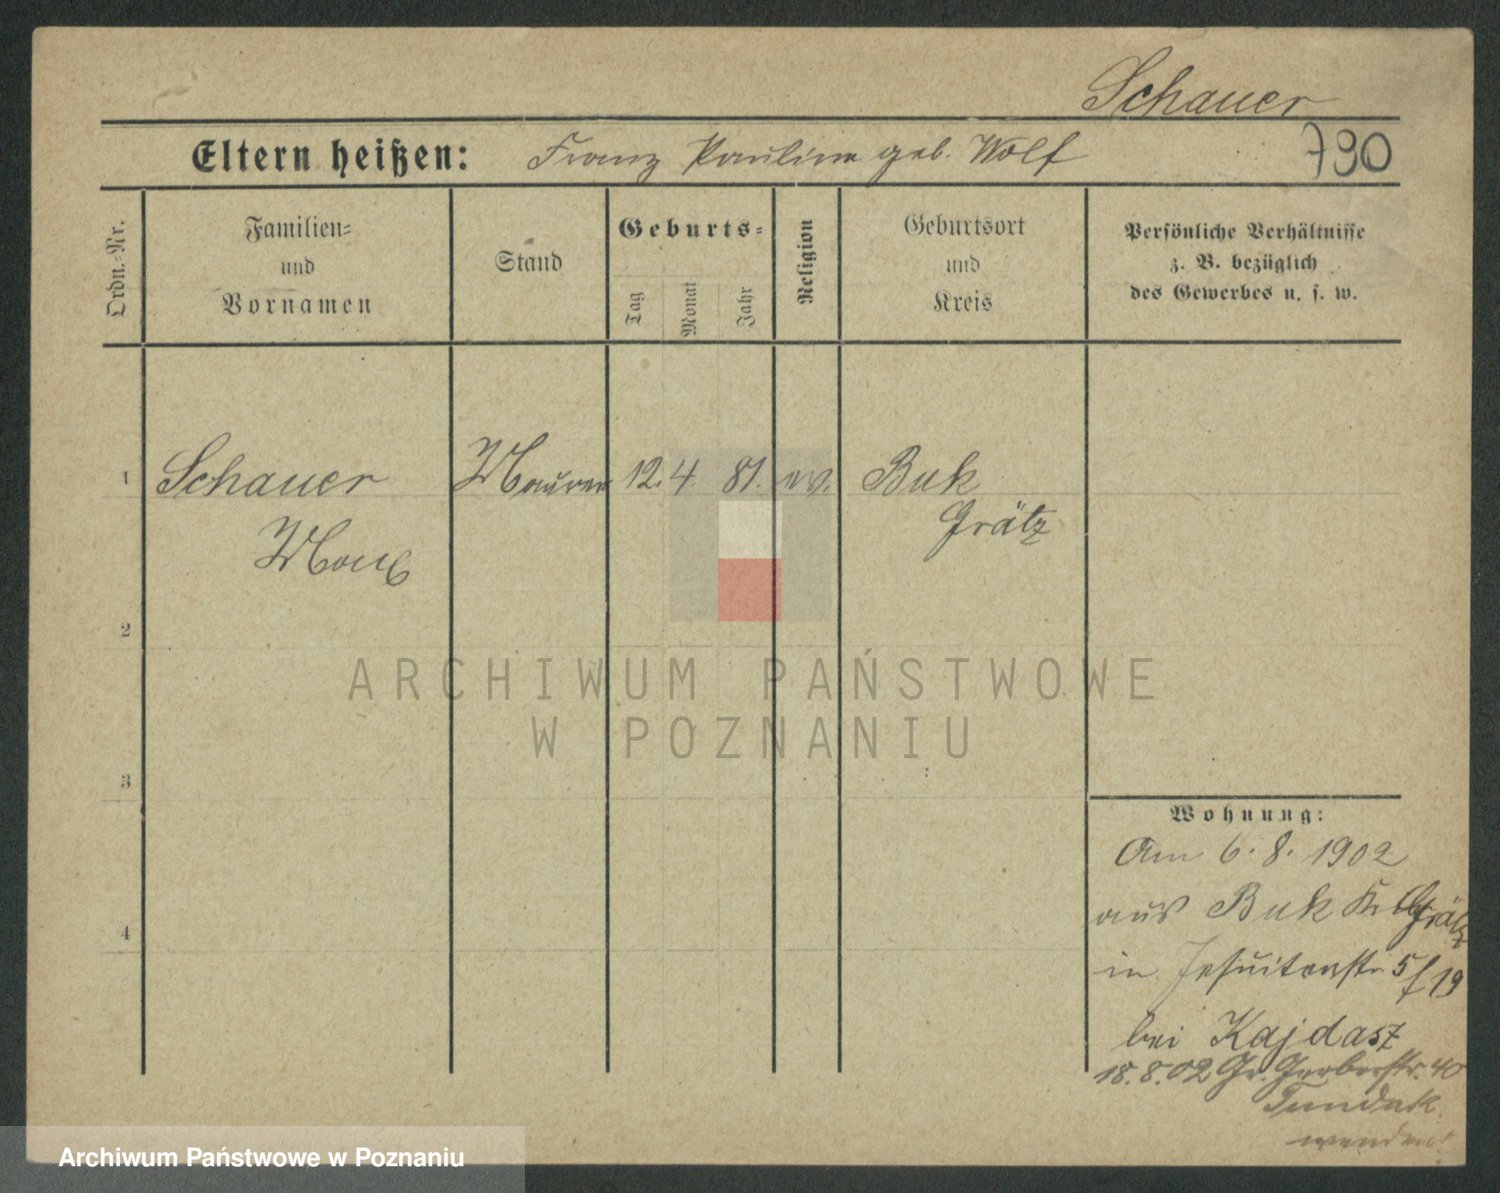 Schauer
Eltern heißen: Franz Pauline geb. Wolf 790
Ordn.-Nr.
Familien-
und
Vornamen
Stand
Geburts-
Tag Monat Jahr
Religion
Geburtsort
und
Kreis
Persönliche Verhältnisse
z. B. bezüglich
des Gewerbes u. s. w.
1 Schauer Maurer 12. 4. 81. ev. Buk
Grätz
Max
2
3
4
ARCHIWUM PAŃSTWOWE
W POZNANIU
Wohnung:
Am 6. 8. 1902
aus Buk Kr Grätz
in Jesuitenstr 5 f 19
bei Kajdasz
18. 8. 02 Gr. Gerberstr. 40
wenden!
Archiwum Państwowe w Poznaniu